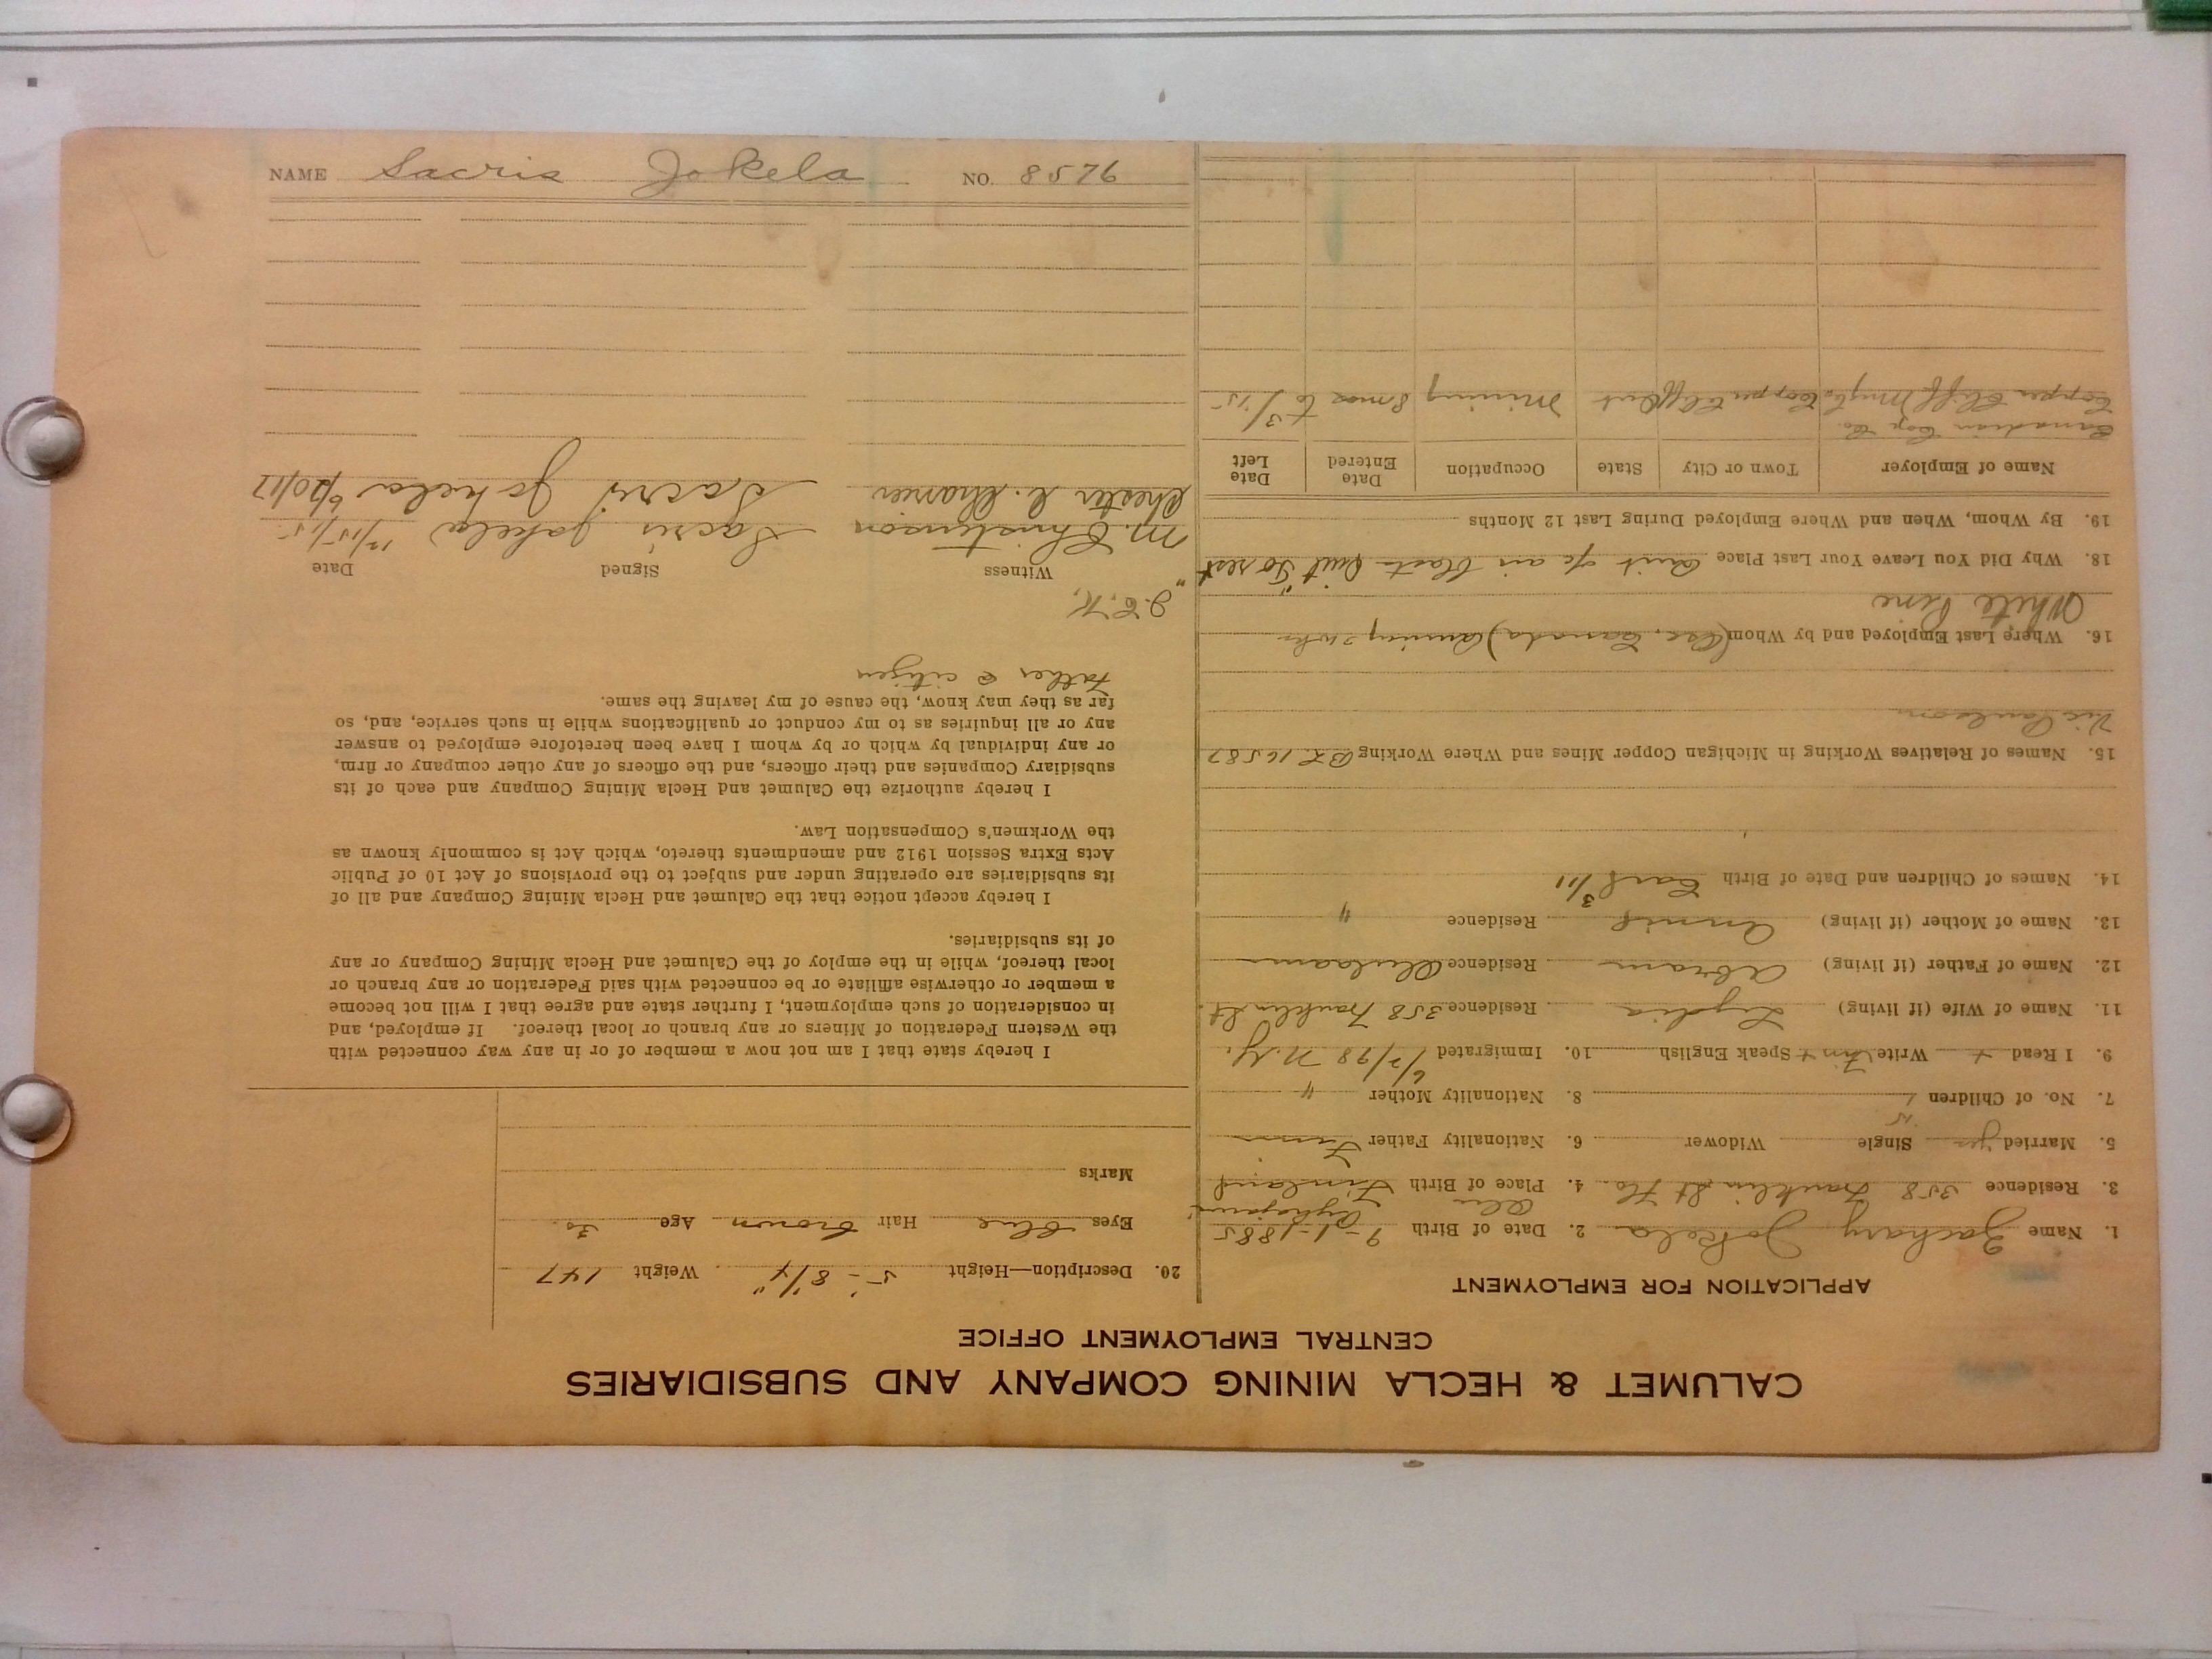 CALUMET & HECLA MINING COMPANY AND SUBSIDIARIES
CENTRAL EMPLOYMENT OFFICE
APPLICATION FOR EMPLOYMENT
1. Name Zachary Jokela 2. Date of Birth 9-1-1885
3. Residence 358 Franklin St Ho. 4. Place of Birth Finland
5. Married yes Single Widower 6. Nationality Father Finn
7. No. of Children 1 8. Nationality Mother "
9. I Read + Write Finn + Speak English 10. Immigrated N.Y.
11. Name of Wife (if living) Lydia Residence 358 Franklin St.
12. Name of Father (if living) Abram Residence
13. Name of Mother (if living) Residence "
14. Names of Children and Date of Birth Earl 3/11
15. Names of Relatives Working in Michigan Copper Mines and Where Working
16. Where Last Employed and by Whom
White Pine
18. Why Did You Leave Your Last Place Quit a/c air blasts Quit "to rest"
19. By Whom, When and Where Employed During Last 12 Months
Name of Employer Town or City State Occupation Date Entered Date Left
Canadian Cop. Co.
Copper Cliff Copper Cliff Ont Mining 8 mos to 3/15
20. Description—Height 5'-8 1/4" Weight 147
Eyes blue Hair brown Age 30
Marks
I hereby state that I am not now a member of or in any way connected with
the Western Federation of Miners or any branch or local thereof. If employed, and
in consideration of such employment, I further state and agree that I will not become
a member or otherwise affiliate or be connected with said Federation or any branch or
local thereof, while in the employ of the Calumet and Hecla Mining Company or any
of its subsidiaries.
I hereby accept notice that the Calumet and Hecla Mining Company and all of
its subsidiaries are operating under and subject to the provisions of Act 10 of Public
Acts Extra Session 1912 and amendments thereto, which Act is commonly known as
the Workmen's Compensation Law.
I hereby authorize the Calumet and Hecla Mining Company and each of its
subsidiary Companies and their officers, and the officers of any other company or firm,
or any individual by which or by whom I have been heretofore employed to answer
any or all inquiries as to my conduct or qualifications while in such service, and, so
far as they may know, the cause of my leaving the same.
Father a citizen
Witness Signed Date
M. Christenson Sacris Jokela 12/15/15
Chester Sacris Jokela 6/20/17
NAME Sacris Jokela NO. 8576